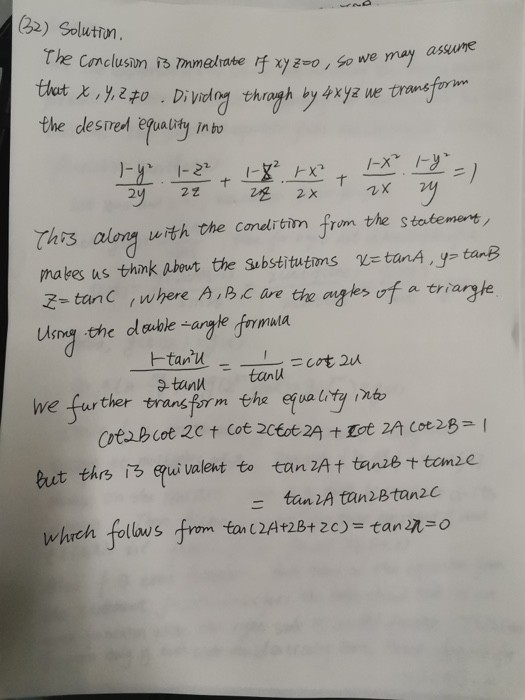 (32) Solution.
The Conclusion is immediate if xyz=0, so we may assume
that x, y, z≠0. Dividing through by 4xyz we transform
the desired equality into
\frac{1-y²}{2y} · \frac{1-z²}{2z} + \frac{1-z²}{2z} · \frac{1-x²}{2x} + \frac{1-x²}{2x} · \frac{1-y²}{2y} = 1
This along with the condition from the statement,
makes us think about the substitutions x=tanA, y=tanB
Z=tanC, where A,B,C are the angles of a triangle.
Using the double-angle formula
\frac{1-tan²u}{2tanu} = \frac{1}{tanu} = cot 2u
We further transform the equality into
cot2Bcot 2C + cot 2Ccot 2A + cot 2A cot2B = 1
But this is equivalent to tan 2A + tan2B + tan2C
= tan2A tan2Btan2C
Which follows from tan(2A+2B+2C) = tan 2π=0